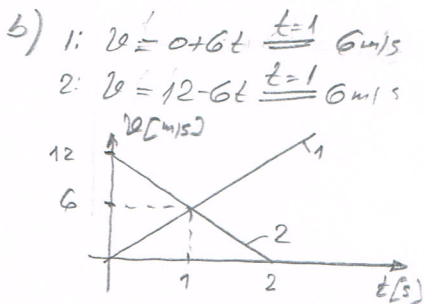 b) 1: v = 0+6t t=1 6m/s
2: v = 12-6t t=1 6m/s
v[m/s]
12
1
6
2
1 2 t[s]